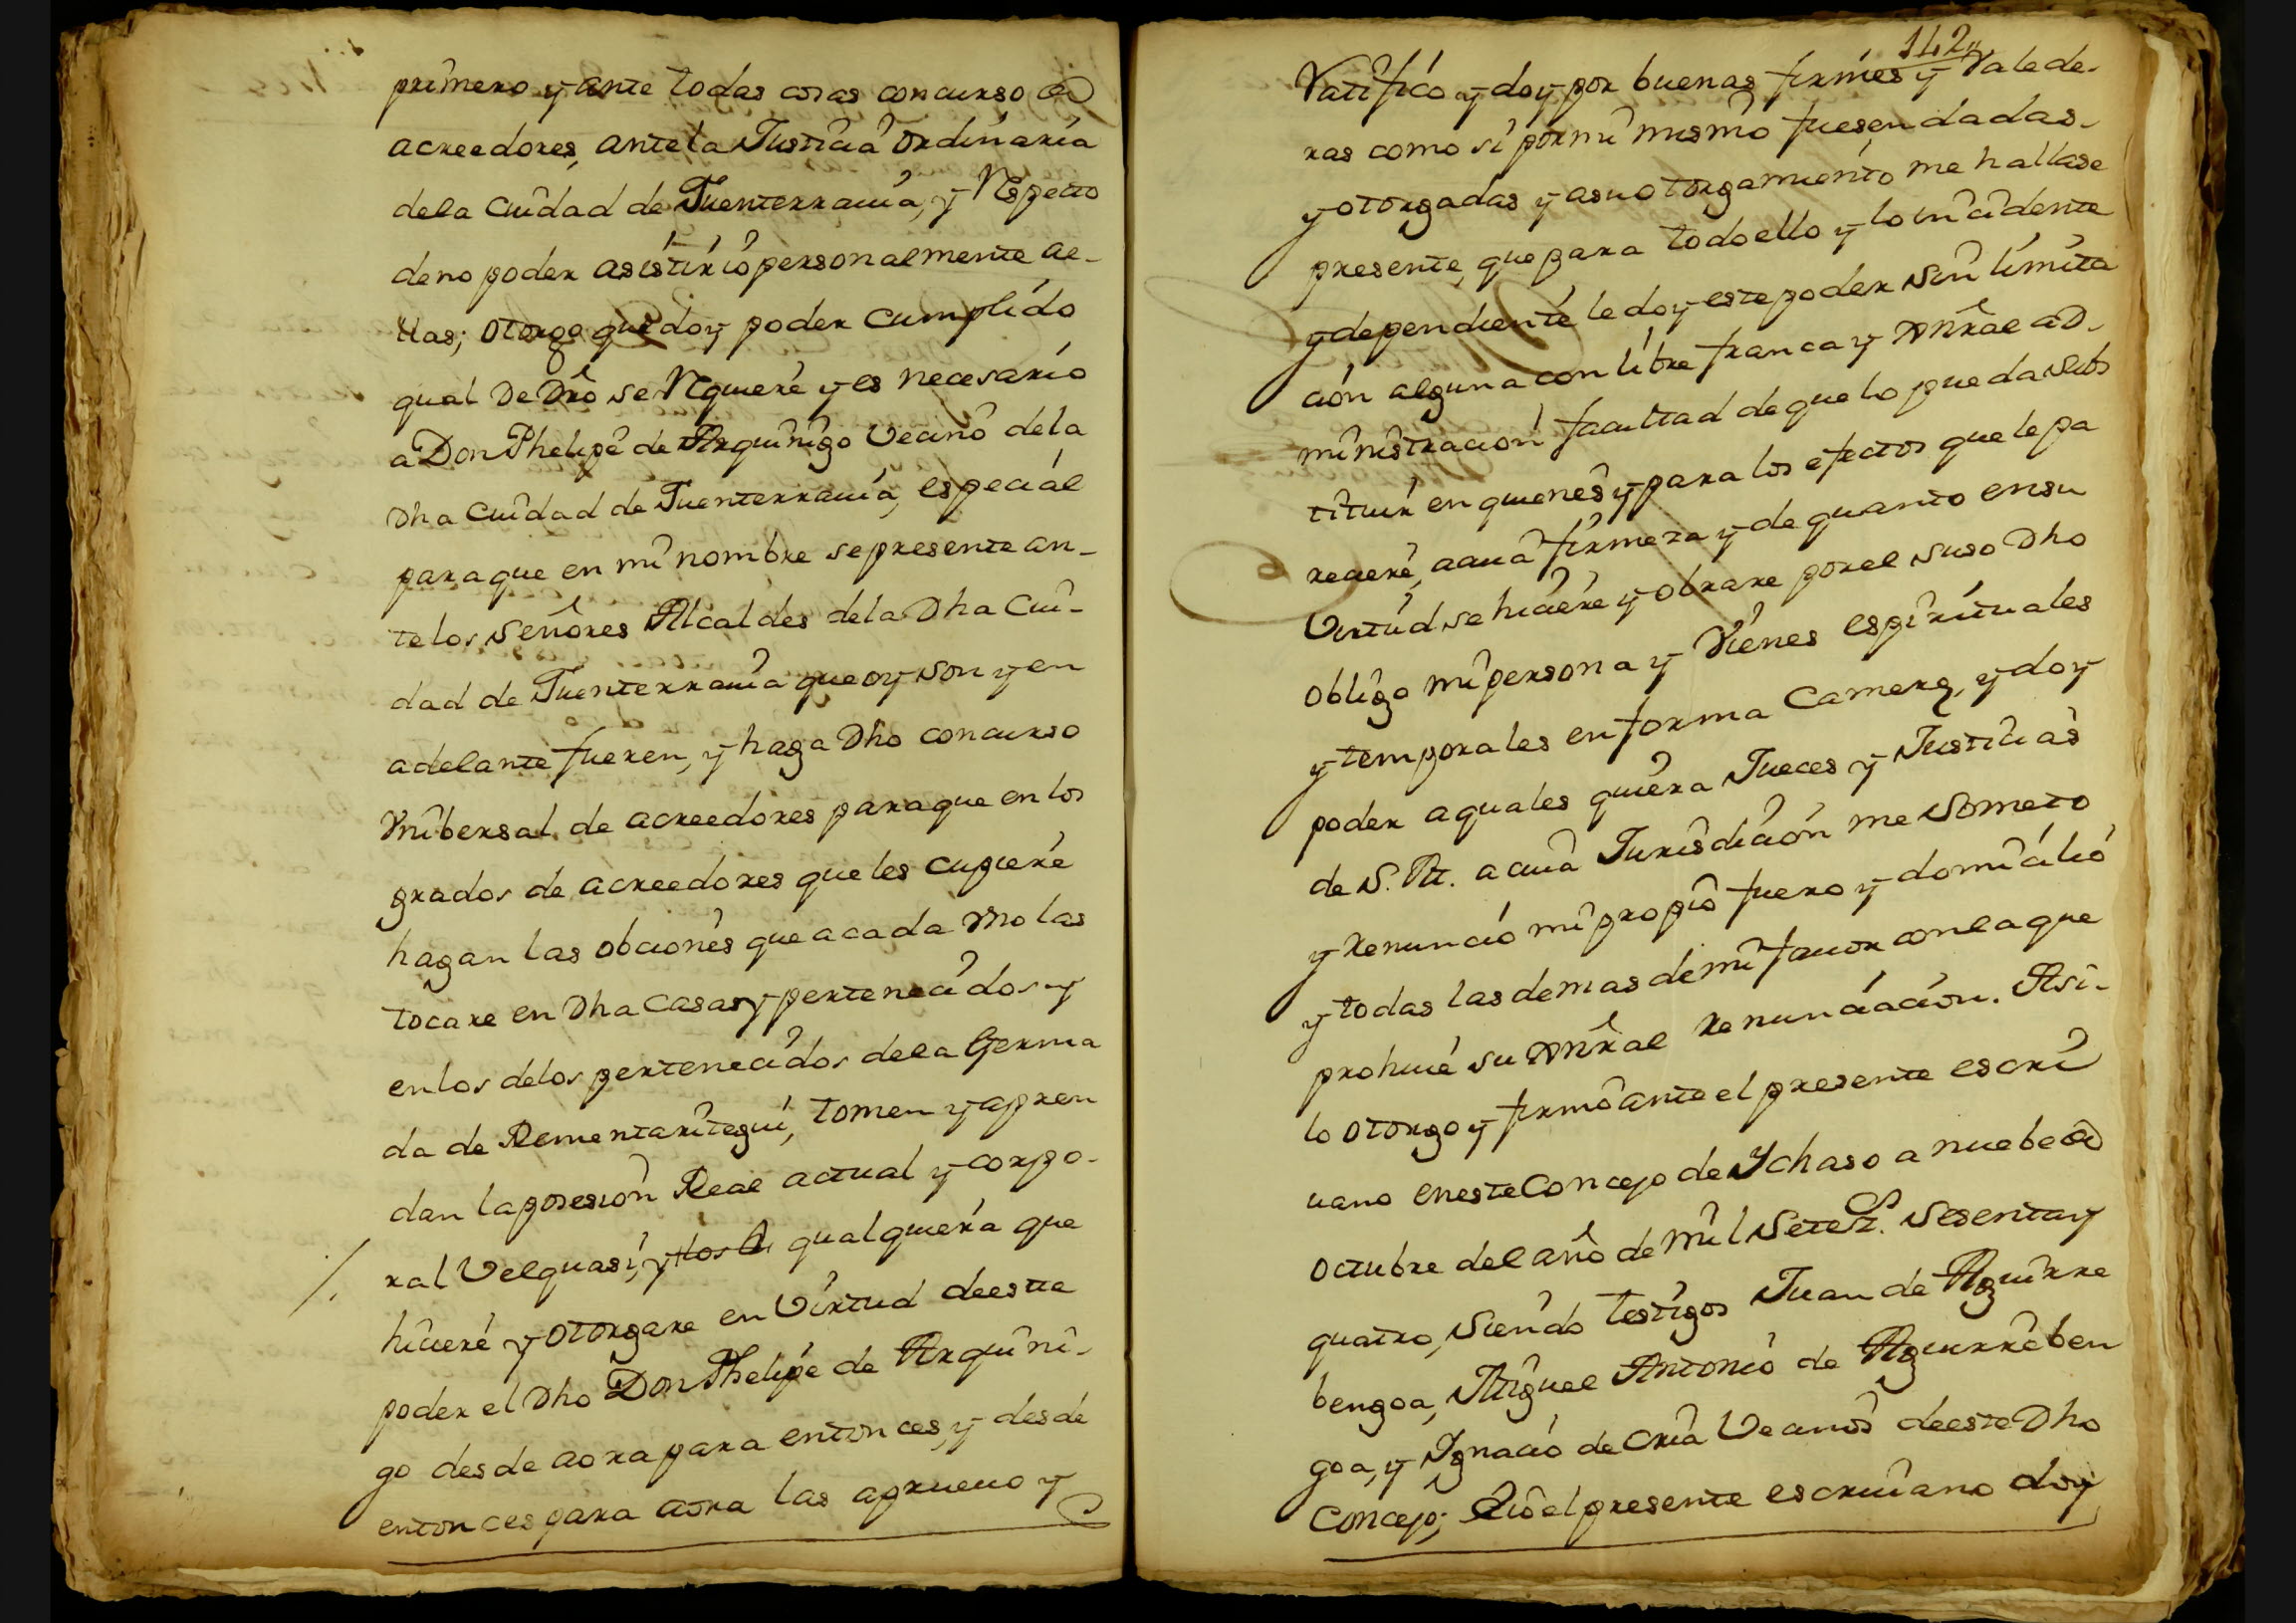 primero y ante todas cosas concurso de
acreedores, ante la Justicia ordinaria
dela Ciudad de Fuenterrauia, y Respecto
de no poder asistir io personalmente ae-
llas; otorgo que doy poder cumplido
qual De Dro se Requiere y es necesario
a Don Phelipe de Arquinigo Vecino dela
Dha Ciudad de Fuenterrauia, especial
para que en mi nombre se presente an-
te los Señores Alcaldes dela Dha Ciu-
dad de Fuenterrauia que oy son y en
adelante fueren, y haga Dho concurso
Vnibersal de acreedores para que en los
grados de acreedores que les cupiere
hagan las obciones que a cada Vno las
tocare en Dha Casas y pertenecidos y
en los delos pertenecidos dela Germa
da de Rementaritegui, tomen y apren
dan la posesion Real actual y corpo-
ral Velquasi, y los qualquiera que
hiciere y otorgare en Virtud de este
poder el Dho Don Phelipe de Arquini-
go desde aora para entonces, y desde
entonces para aora las aprueuo y
142
Ratifico y doy por buenas firmes y Valede-
ras como si por mi mismo fuesen dadas
y otorgadas y asu otorgamiento me hallase
presente, que para todo ello y lo incidente
y dependiente le doy este poder sin limita
cion alguna con libre franca y Gnral ad-
ministracion facultad de que lo pueda subs
tituir en quienes y para los efectos que le pa
reciere, acuia firmeza y de quanto en su
Virtud se hiciere y obrare por el suso Dho
obligo mi persona y Vienes espirituales
y temporales en forma Camere, y doy
poder a quales quiera Jueces y Justicias
de S. M. a cuia Jurisdicion me someto
y Renuncio mi propio fuero y domicilio
y todas las demas de mi fauor con la que
prohiue su Gnral Renunciacion. Asi-
lo otorgo y firmo ante el presente escri
uano en este Concejo de Ychaso a nuebe de
octubre del año de mil Setez.s Sesenta y
quatro, Siendo testigos Juan de Aguirre
bengoa, Miguel Antonio de Aguirreben
goa, y Ignacio de Cria Vecinos de este Dho
Concejo; E io el presente escriuano doy